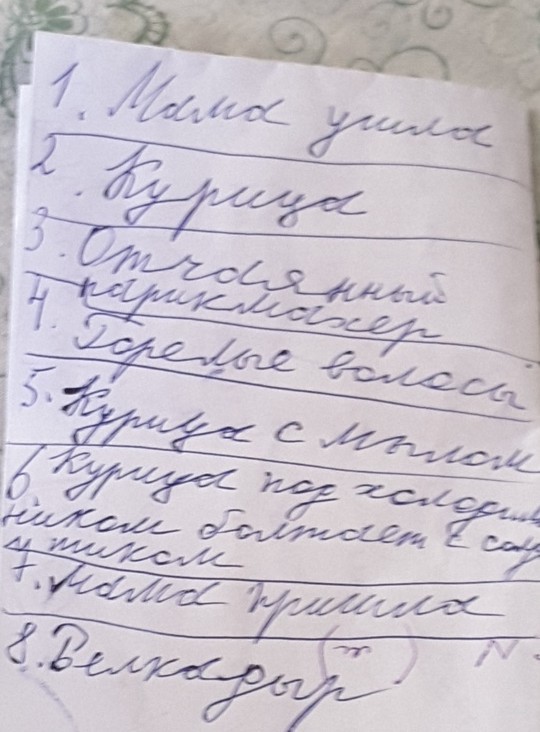 1. Мама ушла
2. Курица
3. Отчаянный
парикмахер
4. Горелые волосы
5. Курица с мылом
6. Курица под холодиль
ником болтает с
чиком
7. Мама пришла
8. Белкадыр
(т)
N